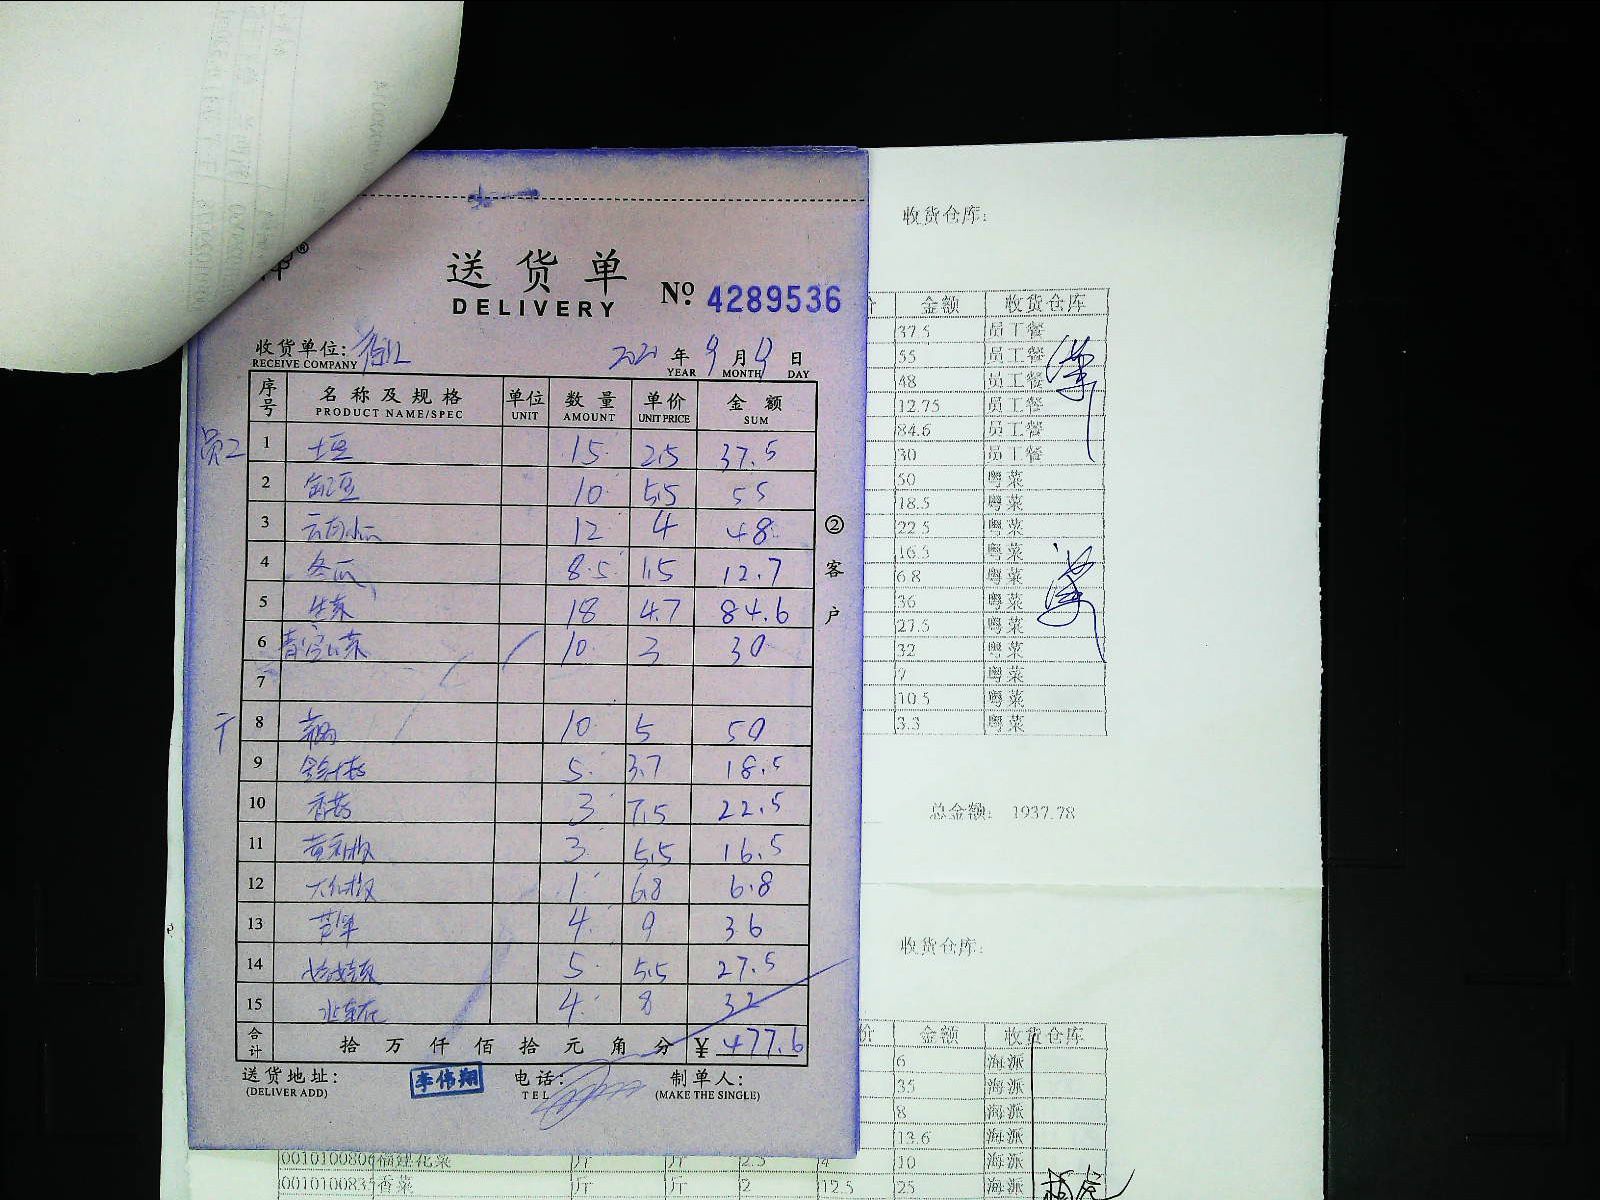 收货仓库:
送货单
DELIVERY
№ 4289536
收货单位:
RECEIVE COMPANY
2021 年 9 月 9 日
YEAR MONTH DAY
序号 名称及规格 单位 数量 单价 金额
PRODUCT NAME/SPEC UNIT AMOUNT UNIT PRICE SUM
员工 1 土豆 15 2.5 37.5
2 豇豆 10 5.5 55
3 12 4 48
4 冬瓜 8.5 1.5 12.7
5 生菜 18 4.7 84.6
6 10 3 30
7
8 10 5 50
9 5 3.7 18.5
10 香菇 3 7.5 22.5
11 3 5.5 16.5
12 大红椒 1 6.8 6.8
13 芦笋 4 9 36
14 5 5.5 27.5
15 4 8 32
合计 拾万仟佰拾元角分 ¥ 477.6
② 客户
送货地址: 李伟翔 电话: 制单人:
(DELIVER ADD) TEL (MAKE THE SINGLE)
价 金额 收货仓库
37.5 员工餐
55 员工餐
48 员工餐
12.75 员工餐
84.6 员工餐
30 员工餐
50 粤菜
18.5 粤菜
22.5 粤菜
16.5 粤菜
6.8 粤菜
36 粤菜
27.5 粤菜
32 粤菜
粤菜
10.5 粤菜
3.3 粤菜
总金额: 1937.78
收货仓库:
价 金额 收货仓库
6 海派
35 海派
8 海派
13.6 海派
0010100806 福建花菜 斤 斤 2.5 4 10 海派
0010100835 香菜 斤 斤 2 12.5 25 海派